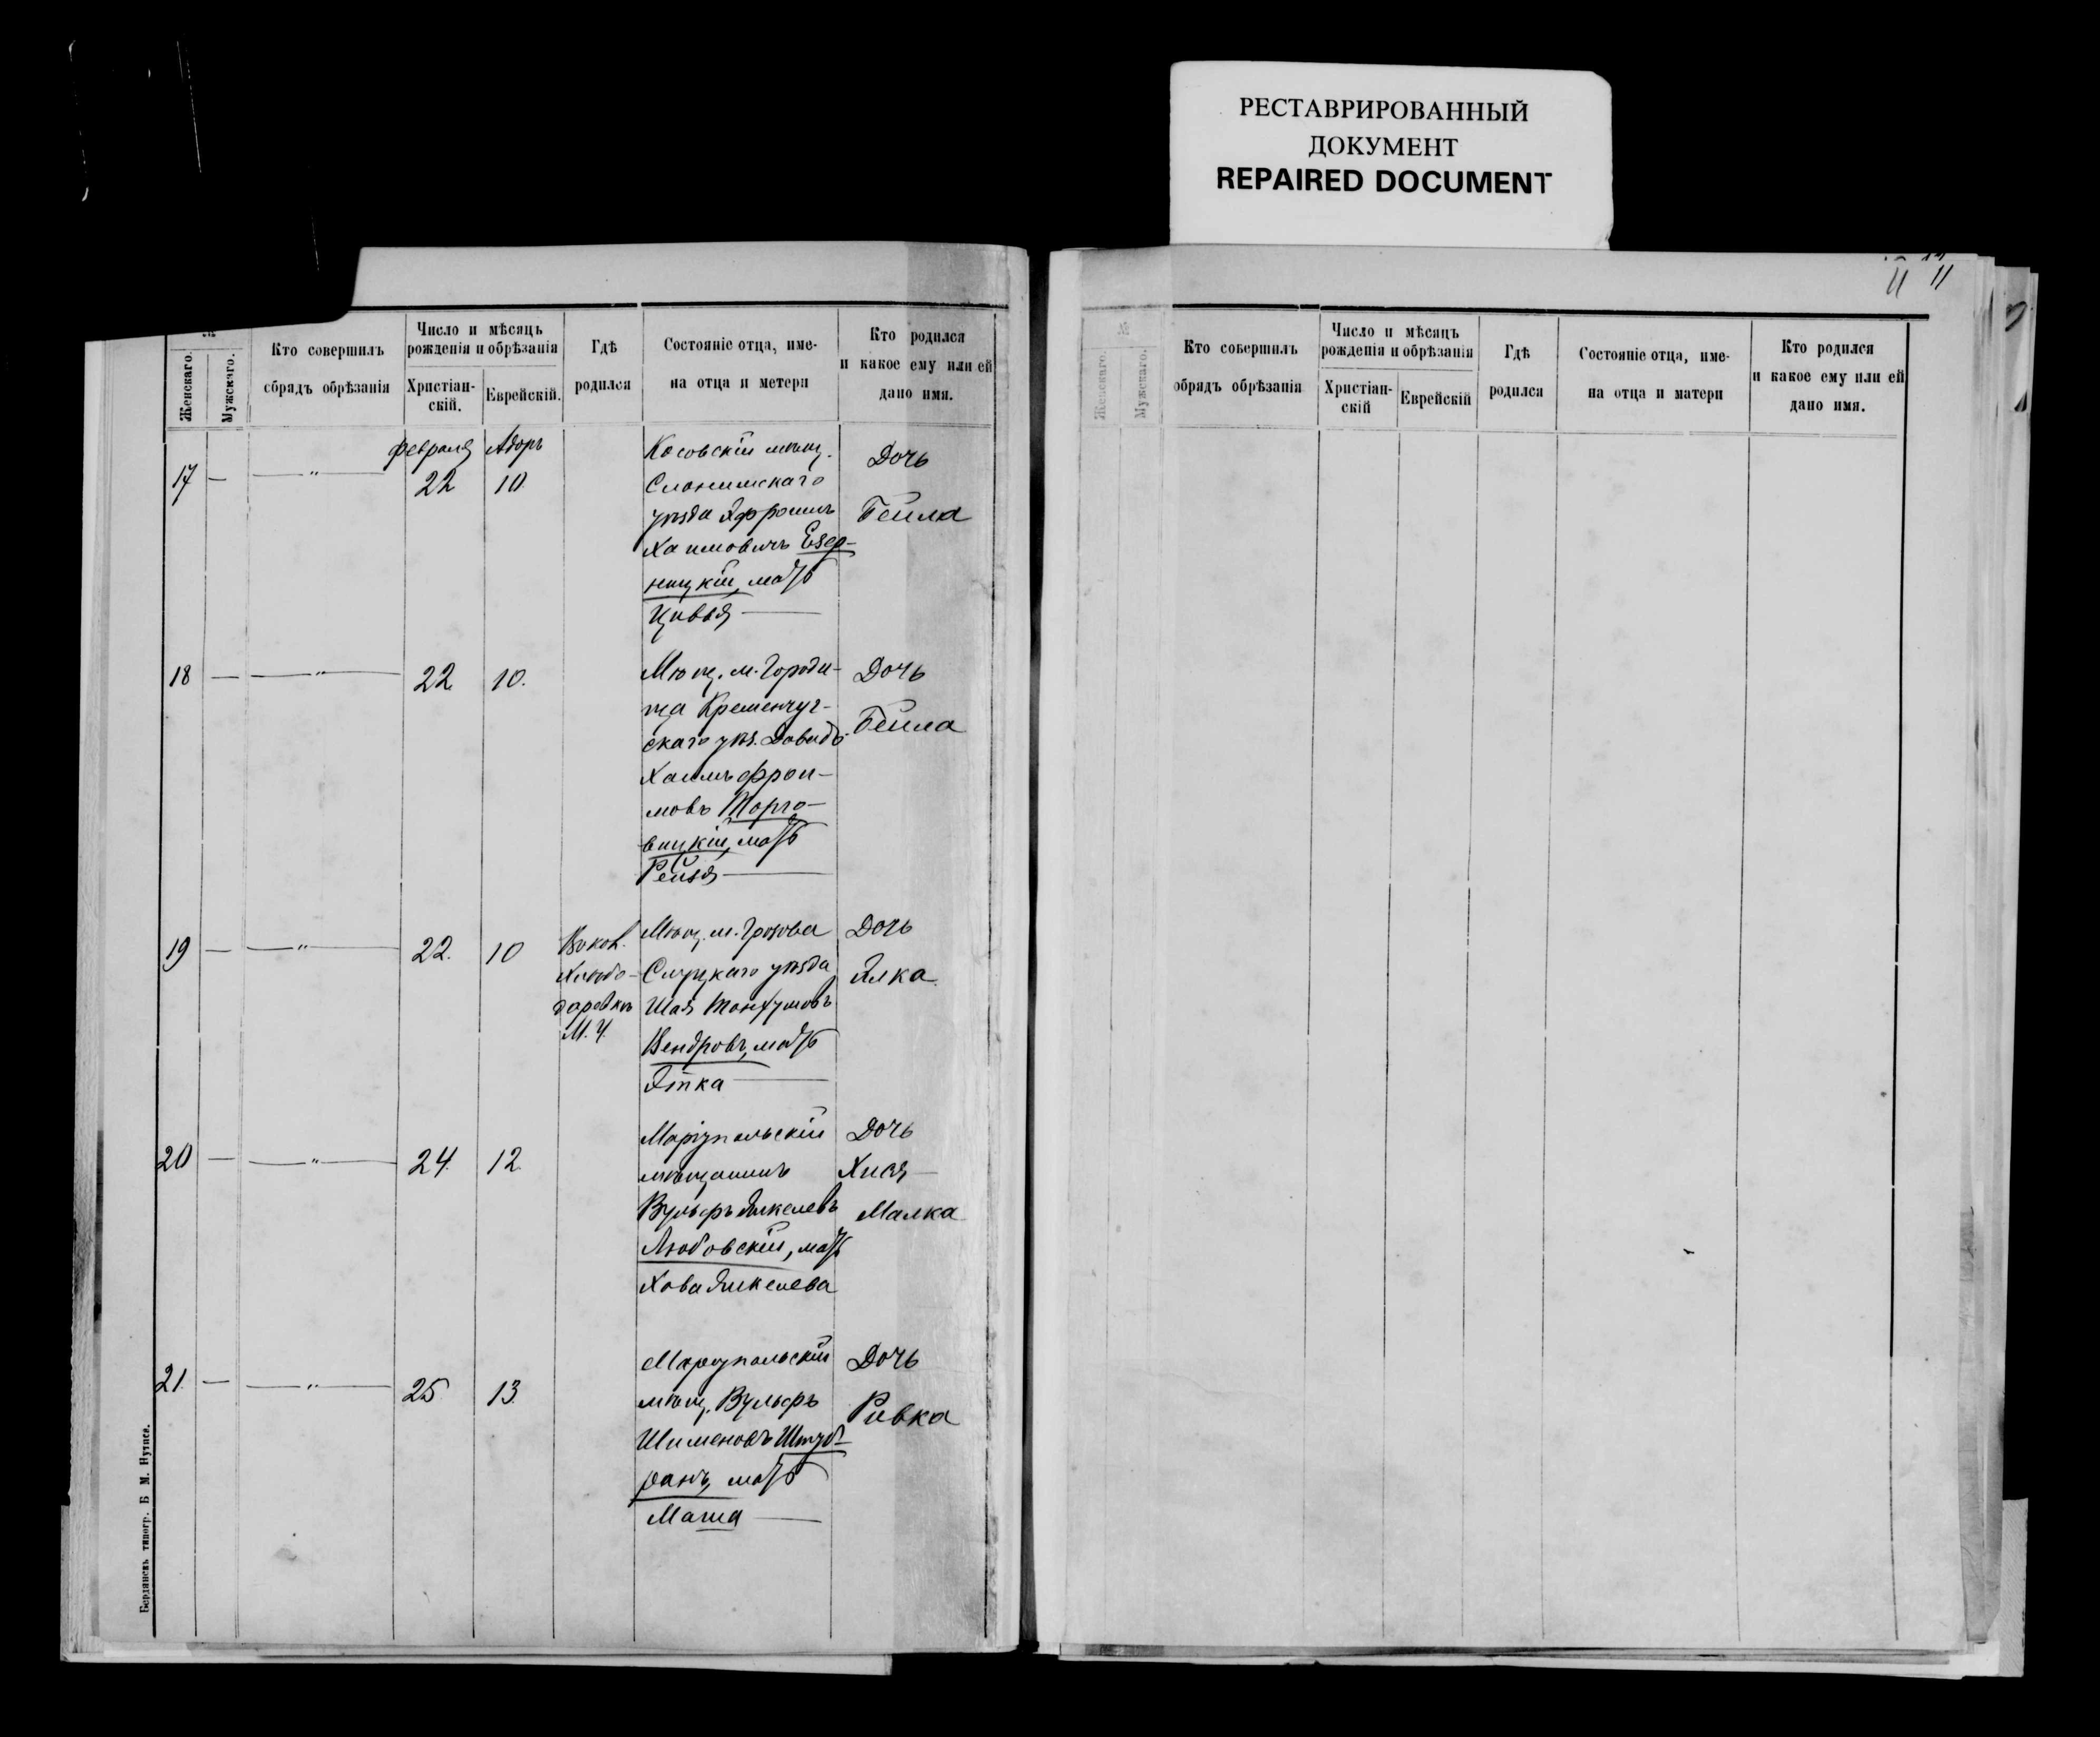 РЕСТАВРИРОВАННЫЙ
ДОКУМЕНТ
REPAIRED DOCUMENT
11 11
№
Женскаго.
Мужскаго.
Кто совершилъ
сбрядъ обрѣзанія
Число и мѣсяцъ
рожденія и обрѣзанія
Христіан-
скій.
Еврейскій.
Гдѣ
родился
Состояніе отца, име-
на отца и метери
Кто родился
и какое ему или ей
дано имя.
17 — — " — февраля 22 Адоръ 10.
Косовскій мѣщ.
Слонимскаго
уѣзда Эфроимъ
Хаимовичъ Езер-
ницкій, мать
Цивья —
Дочь
Бейла
18 — — " — 22 10.
Мѣщ. м. Городи-
ща Кременчуг-
скаго уѣз. Давидъ-
Хаимъ Фрои-
мовъ Торго-
вицкій, мать
Рейзя —
Дочь
Бейла
19 — — " — 22. 10
М. Ч.
Мѣщ. м. Грозова
Слуцкаго уѣзда
Шая Танхумовъ
Вендровъ, мать
Этка —
Дочь
Элка
20 — — " — 24. 12.
Маріупольскій
мѣщанинъ
Вульфъ Янкелевъ
Любовскій, мать
Хава Янкелева
Дочь
Хися —
Малка
21. — — " — 25 13.
Маріупольскій
мѣщ. Вульфъ
Шименовъ Штуб-
ранъ, мать
Маша —
Дочь
Ривка
Бердянскъ типогр. Б М.
№
Женскаго.
Мужскаго.
Кто совершилъ
обрядъ обрѣзанія
Число и мѣсяцъ
рожденія и обрѣзанія
Христіан-
скій
Еврейскій
Гдѣ
родился
Состояніе отца, име-
на отца и матери
Кто родился
и какое ему или ей
дано имя.